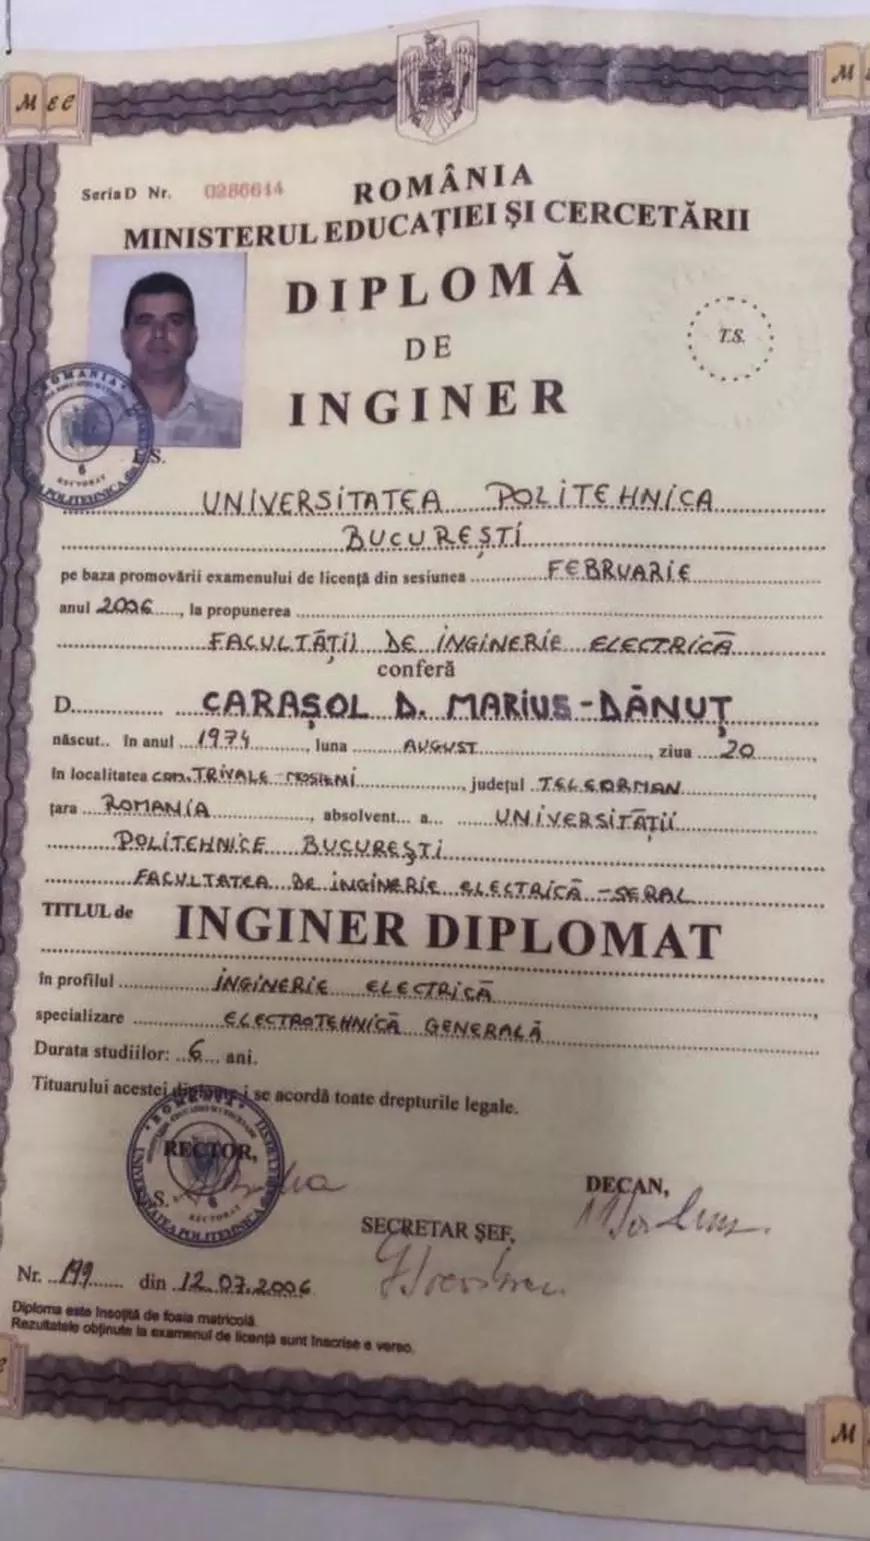 M E C
M
SeriaD Nr. 0286614
ROMÂNIA
MINISTERUL EDUCAȚIEI ȘI CERCETĂRII
DIPLOMĂ
DE
INGINER
T.S.
ROMANIA
6
RECTORAT
UNIVERSITATEA POLITEHNICA
BUCUREȘTI
pe baza promovării examenului de licență din sesiunea FEBRUARIE
anul 2006, la propunerea
FACULTĂȚII DE INGINERIE ELECTRICĂ
conferă
D. CARAȘOL D. MARIUS-DĂNUȚ
născut.. în anul 1974, luna AUGUST, ziua 20
în localitatea com. TRIVALE-MOȘTENI, județul TELEORMAN,
țara ROMANIA, absolvent... a... UNIVERSITĂȚII
POLITEHNICE BUCUREȘTI
FACULTATEA DE INGINERIE ELECTRICĂ - SERAL
TITLUL de INGINER DIPLOMAT
în profilul INGINERIE ELECTRICĂ,
specializare ELECTROTEHNICĂ GENERALĂ
Durata studiilor: 6 ani.
Tituarului acestei diplome i se acordă toate drepturile legale.
RECTOR,
DECAN,
SECRETAR ȘEF,
Nr. 199 din 12.07.2006
Diploma este însoțită de foaia matricolă.
Rezultatele obținute la examenul de licență sunt înscrise e verso.
M